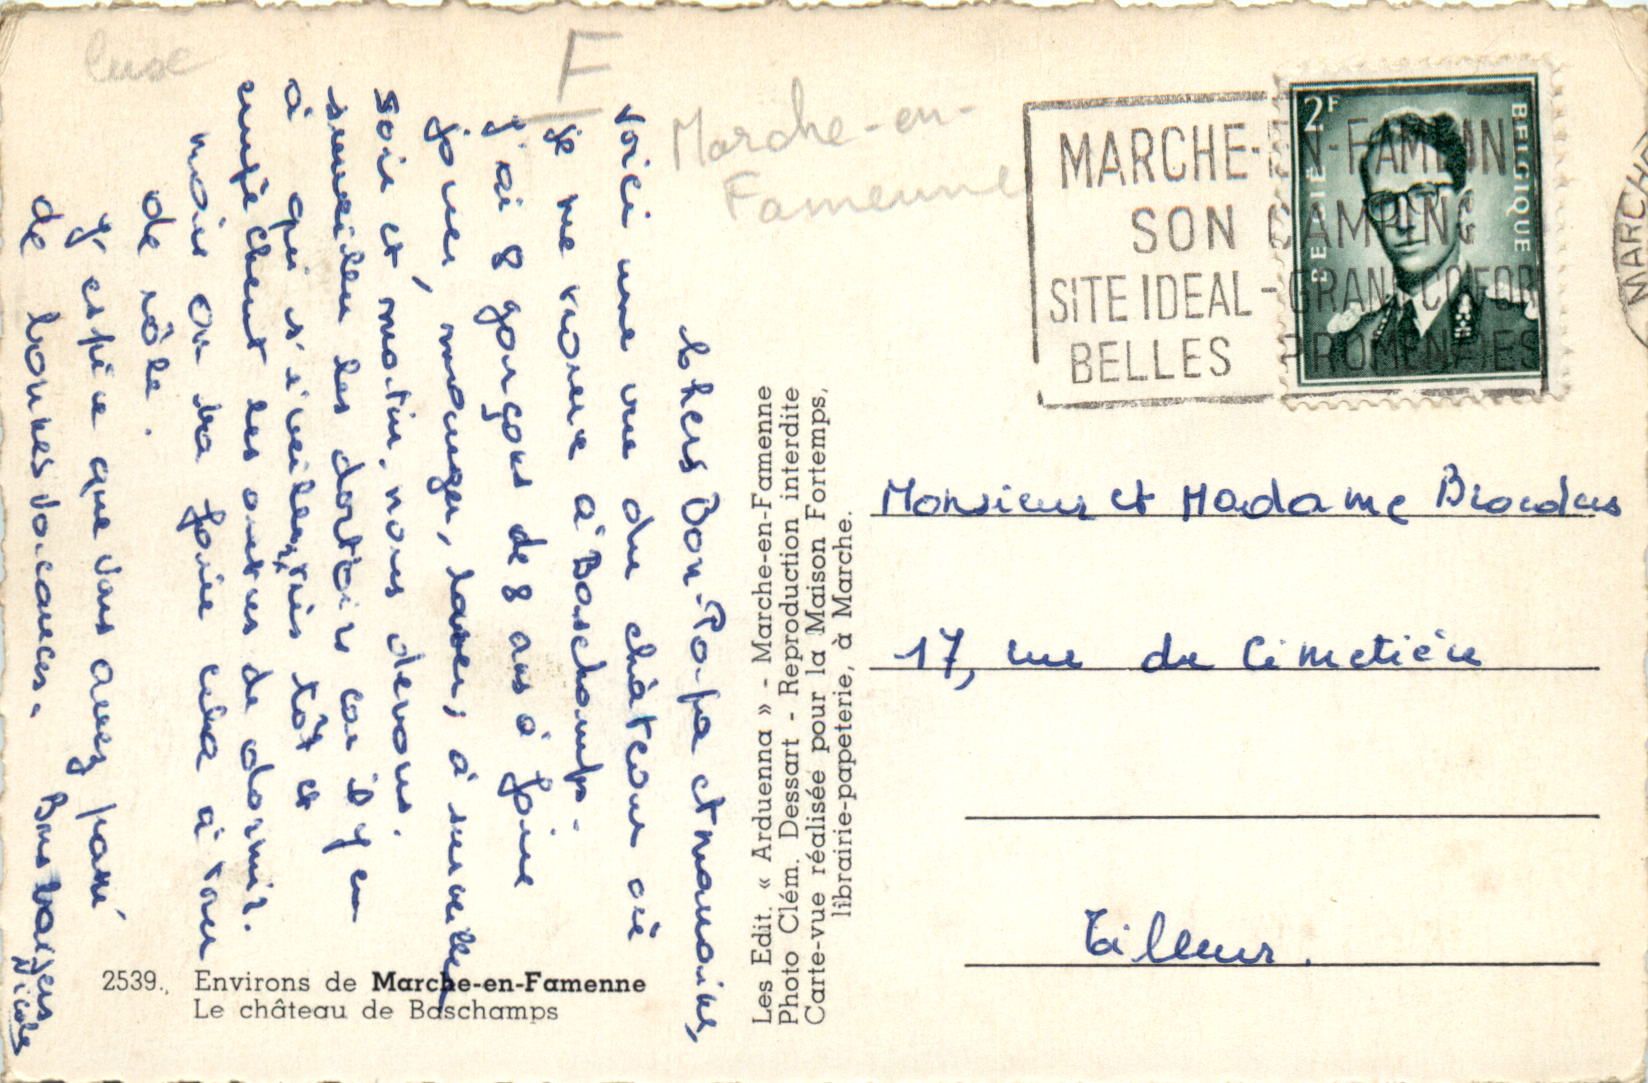 F
Marche-en-
Famenne
Chers Bon-Papa et Mamaine,
Voici une vue du château où
je me trouve à Baschamps.
J'ai 8 garçons de 8 ans à faire
jouer, manger, laver, à surveiller
soir et matin. nous devons
surveiller les dortoirs car il y en
a qui s'éveillent très tôt et
empêchent les autres de dormir.
mais on va faire cela à tour
de rôle.
J'espère que vous avez passé
de bonnes vacances. Bons baisers
Nicole
2539. Environs de Marche-en-Famenne
Le château de Baschamps
Les Edit. « Arduenna » - Marche-en-Famenne
Photo Clém. Dessart - Reproduction interdite
Carte-vue réalisée pour la Maison Fortemps,
librairie-papeterie, à Marche.
MARCHE-EN-FAMENN
SON CAMPING
SITE IDEAL - GRAND CONFOR
BELLES PROMENADES
2F
BELGIË
BELGIQUE
MARCHE
Monsieur et Madame
17, rue du Cimetière
Tilleur.